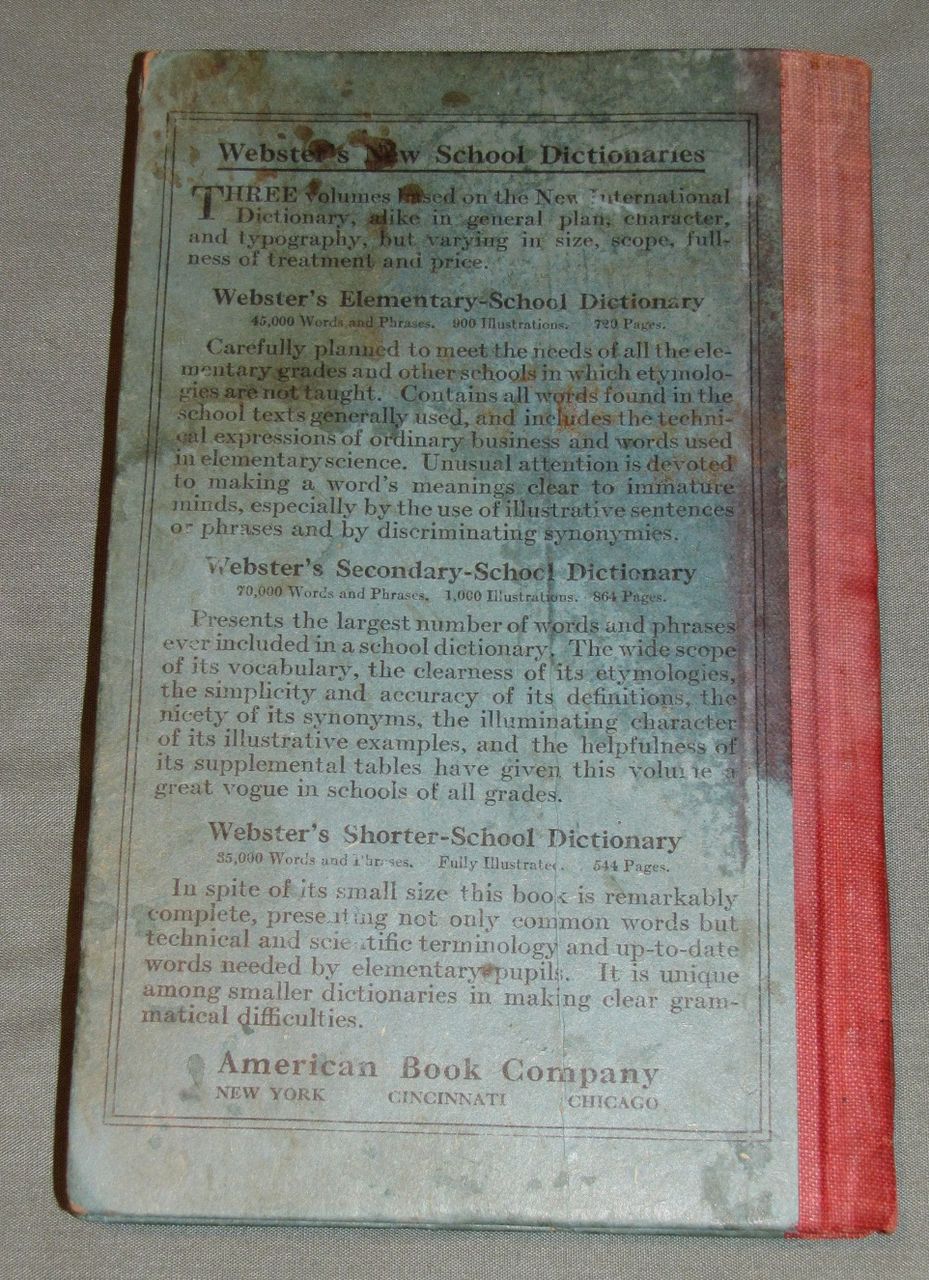 Webster's New School Dictionaries
THREE volumes based on the New International
Dictionary, alike in general plan, character,
and typography, but varying in size, scope, full-
ness of treatment and price.
Webster's Elementary-School Dictionary
45,000 Words and Phrases. 900 Illustrations. 720 Pages.
Carefully planned to meet the needs of all the ele-
mentary grades and other schools in which etymolo-
gies are not taught. Contains all words found in the
school texts generally used, and includes the techni-
cal expressions of ordinary business and words used
in elementary science. Unusual attention is devoted
to making a word's meanings clear to immature
minds, especially by the use of illustrative sentences
or phrases and by discriminating synonymies.
Webster's Secondary-School Dictionary
70,000 Words and Phrases. 1,000 Illustrations. 864 Pages.
Presents the largest number of words and phrases
ever included in a school dictionary. The wide scope
of its vocabulary, the clearness of its etymologies,
the simplicity and accuracy of its definitions, the
nicety of its synonyms, the illuminating character
of its illustrative examples, and the helpfulness of
its supplemental tables have given this volume a
great vogue in schools of all grades.
Webster's Shorter-School Dictionary
35,000 Words and Phrases. Fully Illustrated. 544 Pages.
In spite of its small size this book is remarkably
complete, presenting not only common words but
technical and scientific terminology and up-to-date
words needed by elementary pupils. It is unique
among smaller dictionaries in making clear gram-
matical difficulties.
American Book Company
NEW YORK CINCINNATI CHICAGO